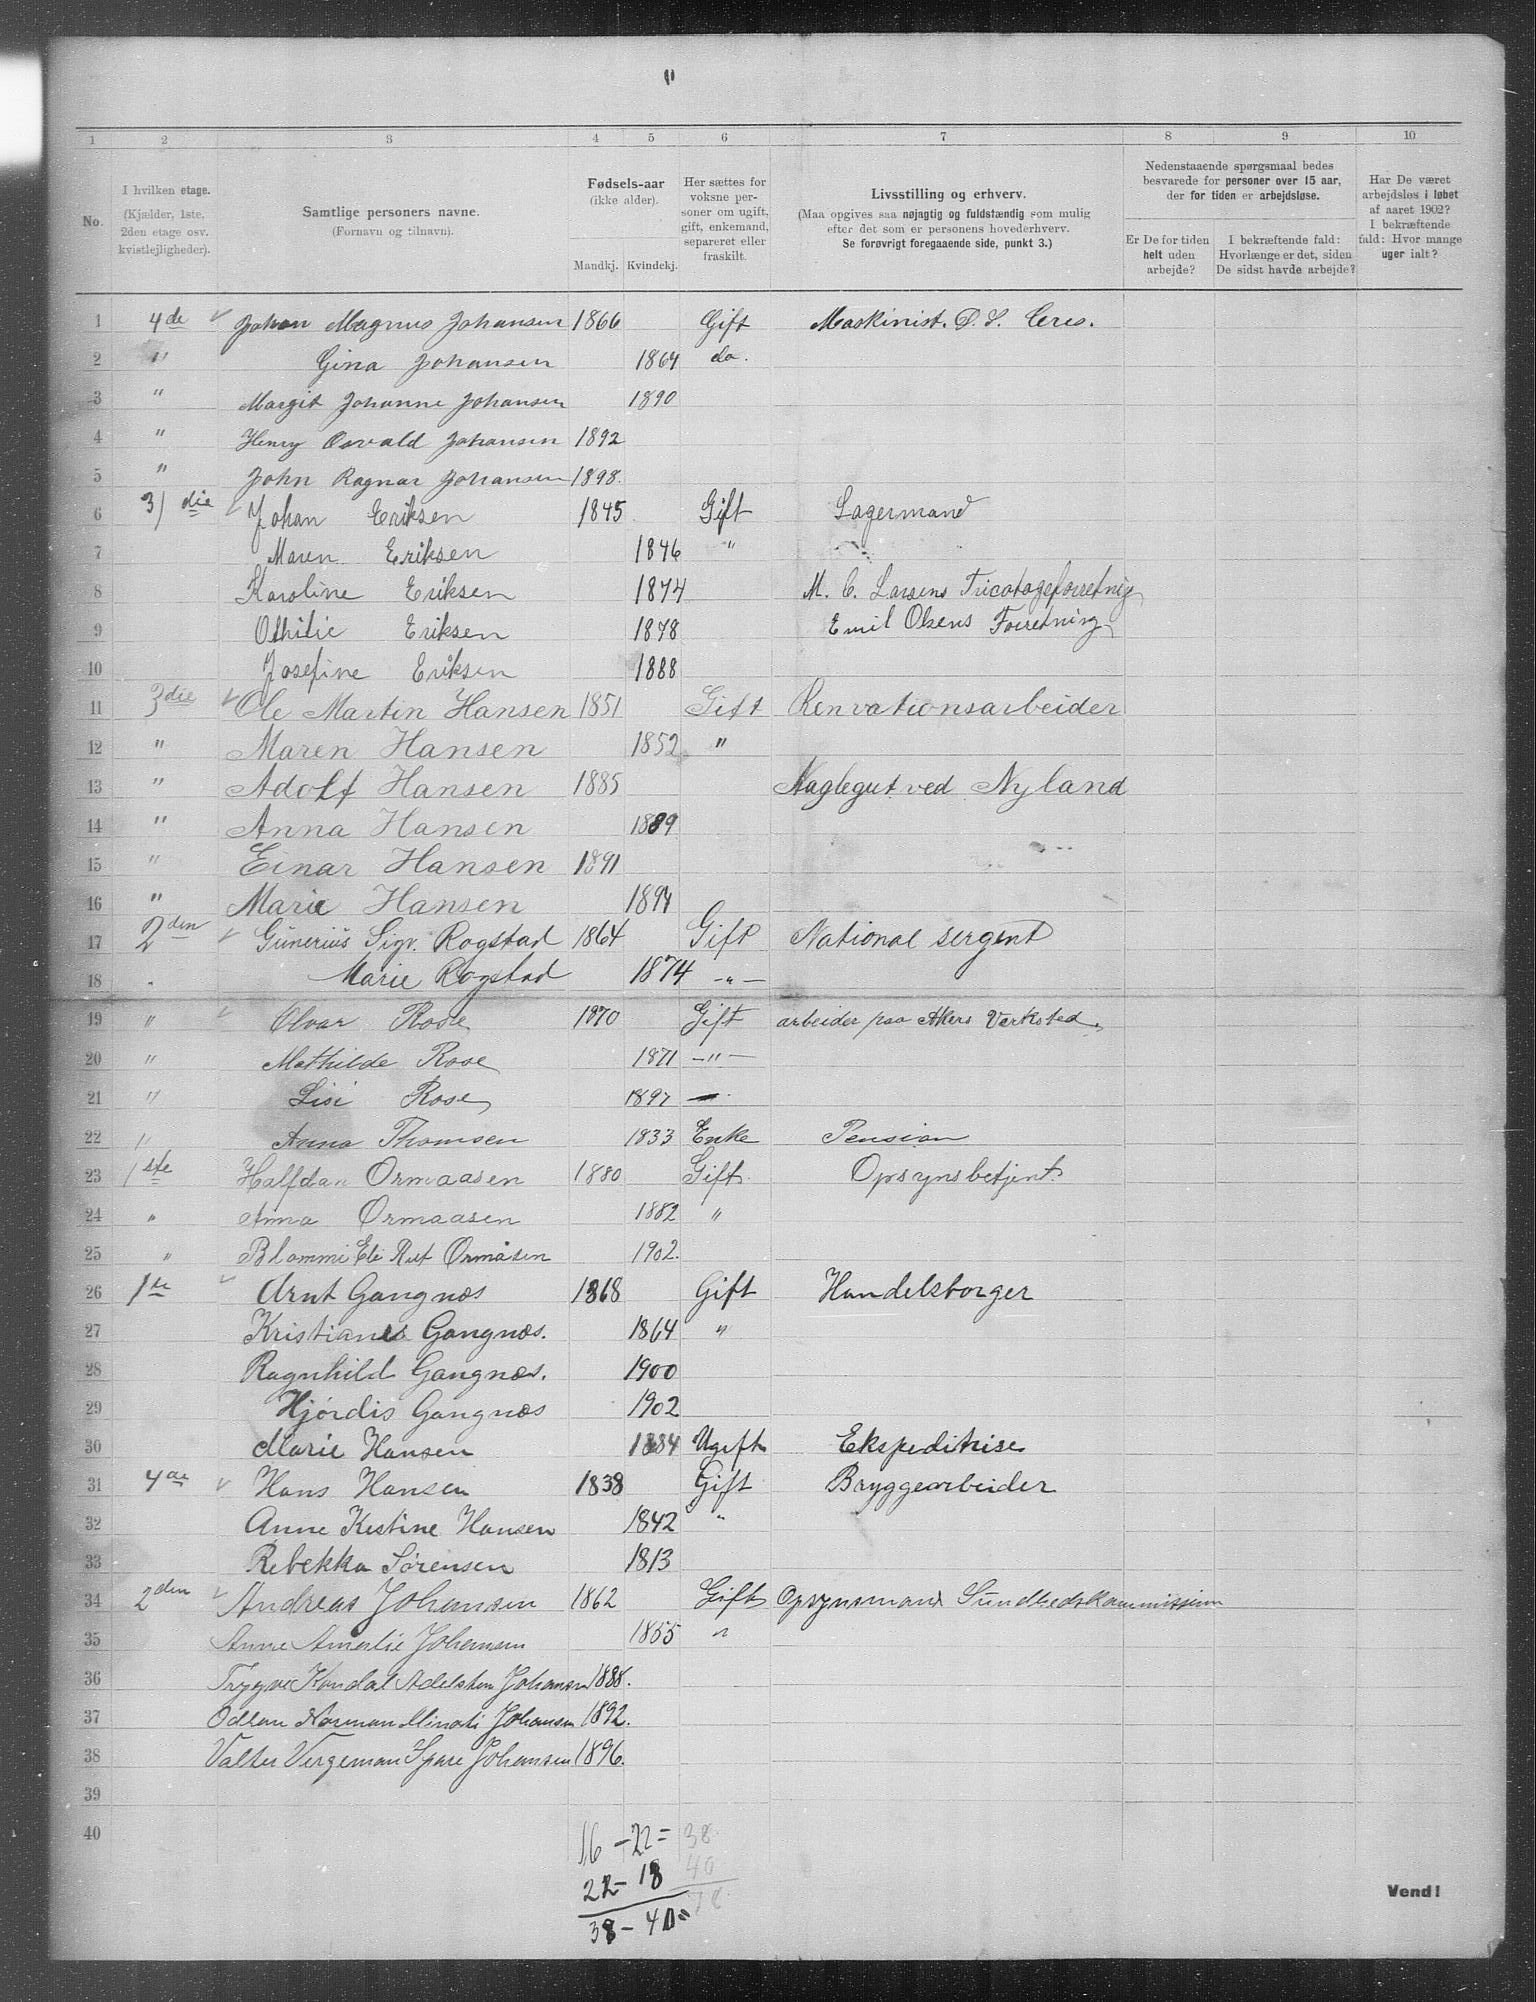 "
1 2 3 4 5 6 7 8 9 10
No.
I hvilken etage.
(Kjælder, 1ste,
2den etage osv.
kvistlejligheder).
Samtlige personers navne.
(Fornavn og tilnavn).
Fødsels-aar
(ikke alder).
Mandkj. Kvindekj.
Her sættes for
voksne per-
soner om ugift,
gift, enkemand,
separeret eller
fraskilt.
Livsstilling og erhverv.
(Maa opgives saa nøjagtig og fuldstændig som mulig
efter det som er personens hovederhverv.
Se forøvrigt foregaaende side, punkt 3.)
Nedenstaaende spørgsmaal bedes
besvarede for personer over 15 aar,
der for tiden er arbejdsløse.
Er De for tiden
helt uden
arbejde?
I bekræftende fald:
Hvorlænge er det, siden
De sidst havde arbejde?
Har De været
arbejdsløs i løbet
af aaret 1902?
I bekræftende
fald: Hvor mange
uger ialt?
1 4de Johan Magnus Johansen 1866 Gift Maskinist. D. S. Ceres.
2 " Gina Johansen 1864 do.
3 " Margit Johanne Johansen 1890
4 " Henry Osvald Johansen 1892
5 " John Ragnar Johansen 1898.
6 3/die Johan Eriksen 1845 Gift Lagermand
7 Maren Eriksen 1846 "
8 Karoline Eriksen 1874 M. C. Larsens Tricotageforretnig
9 Othilie Eriksen 1878 Emil Olsens Forretning
10 Josefine Eriksen 1888
11 3die Ole Martin Hansen 1851 Gift Renvationsarbeider
12 " Maren Hansen 1852 "
13 " Adolf Hansen 1885 Naglegut ved Nyland
14 " Anna Hansen 1889
15 " Einar Hansen 1891
16 " Marie Hansen 1894
17 2den Gunerius Sigv. Rogstad 1864 Gift National sergent
18 . Marie Rogstad 1874 -"-
19 " Olvar Rose 1870 Gift arbeider paa Akers Verksted.
20 " Mathilde Rose 1871 -"-
21 " Lisi Rose 1897 -
22 " Anna Thomsen 1833 Enke Pension
23 1ste Halfdan Ormaasen 1880 Gift. Opsynsbetjent.
24 " Anna Ormaasen 1882 "
25 " Blommi Eli Rut Ormåsen 1902.
26 1ste Arnt Gangnæs 1868 Gift Handelsborger
27 Kristiane Gangnæs. 1864 "
28 Ragnhild Gangnæs. 1900
29 Hjørdis Gangnæs 1902
30 Marie Hansen 1884 Ugift Ekspeditrise
31 4de Hans Hansen 1838 Gift Bryggearbeider
32 Anne Kestine Hansen 1842 "
33 Rebekka Sørensen 1813
34 2den Andreas Johansen 1862 Gift Opsynsmand Sundhedskommission
35 Anne Amalie Johansen 1855 "
36 Trygve Kondal Adelsten Johansen 1888.
37 Odlau Norman Minoti Johansen 1892.
38 Valter Vergeman Spare Johansen 1896.
39
40
16 - 22 = 38
22 - 18 40
38 - 40 = 78
Vend!